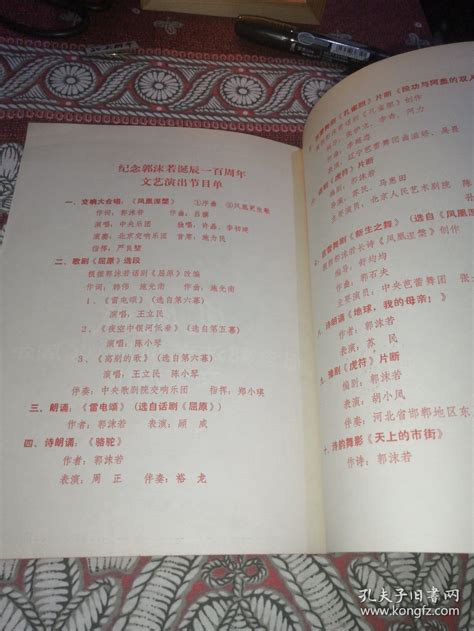 纪念郭沫若诞辰一百周年
文艺演出节目单
一、交响大合唱:《凤凰涅槃》 ①序曲 ③凤凰更生歌
作词:郭沫若 作曲:吕骥
演唱:中央乐团 独唱:许磊、李初建
演奏:北京交响乐团 首席:施为民
指挥:严良堃
二、歌剧《屈原》选段
根据郭沫若话剧《屈原》改编
作词:韩伟 施光南 作曲:施光南
1、《雷电颂》(选自第六幕)
演唱:王立民
2、《夜空中银河低垂》(选自第五幕)
演唱:陈小琴
3、《离别的歌》(选自第六幕)
演唱:王立民 陈小琴
伴奏:中央歌剧院交响乐团 指挥:郑小瑛
三、朗诵:《雷电颂》(选自话剧《屈原》)
作者:郭沫若 表演:顾威
四、诗朗诵:《骆驼》
作者:郭沫若
表演:周正 伴奏:裕龙
芭蕾舞剧《孔雀胆》片断《段功与阿盖的双人
片断
编剧:郭沫若
导演:苏民、
演出:北京人民艺术剧院
芭蕾舞剧《新生之舞》(选自《凤
郭沫若长诗《凤凰涅槃》创作
编导:舒均均
作曲:郭石夫
主要演员:中央芭蕾舞团
诗朗诵《地球,我的母亲!》
作者:郭沫若
表演:苏民
豫剧《虎符》片断
编剧:郭沫若
表演:胡小凤
伴奏:河北省邯郸地区东
诗的舞影《天上的市街》
作诗:郭沫若
孔夫子旧书网
www.kongfz.com